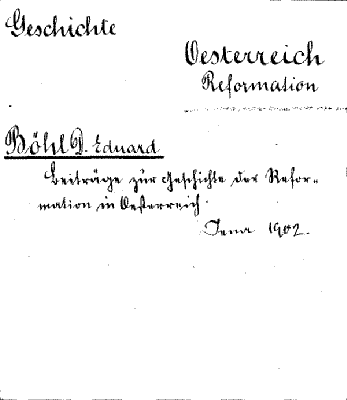 Geschichte
Oesterreich
Reformation
Böhl D. Eduard
Beiträge zur Geschichte der Refor-
mation in Oesterreich
Jena 1902.